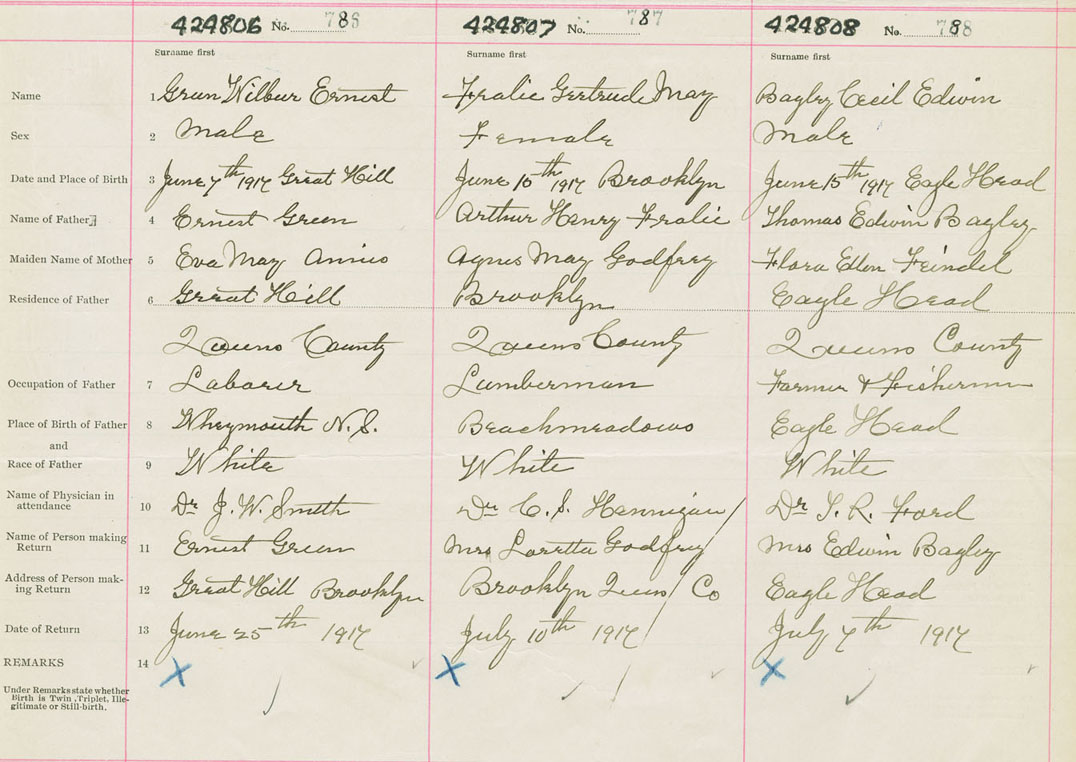 424806 No. 788 424807 No. 787 424808 No. 788
Surname first Surname first Surname first
Name 1 Green Wilbur Ernest Fralic Gertrude May Bagley Cecil Edwin
Sex 2 Male Female Male
Date and Place of Birth 3 June 7th 1917 Great Hill June 15th 1917 Brooklyn June 15th 1917 Eagle Head
Name of Father 4 Ernest Green Arthur Henry Fralic Thomas Edwin Bagley
Maiden Name of Mother 5 Eva May Annis Agnes May Godfrey Flora Ellen Feindel
Residence of Father 6 Great Hill Brooklyn Eagle Head
Queens County Queens County Queens County
Occupation of Father 7 Laborer Lumberman Farmer & Fisherman
Place of Birth of Father 8 Wheymouth N.S. Beachmeadows Eagle Head
and
Race of Father 9 White White White
Name of Physician in
attendance 10 Dr J. W. Smith Dr C. S. Hennigan Dr T. R. Ford
Name of Person making
Return 11 Ernest Green Mrs Loretta Godfrey Mrs Edwin Bagley
Address of Person mak-
ing Return 12 Great Hill Brooklyn Brooklyn Queens Co Eagle Head
Date of Return 13 June 25th 1917 July 10th 1917 July 7th 1917
REMARKS 14 X X X
Under Remarks state whether
Birth is Twin, Triplet, Ille-
gitimate or Still-birth.